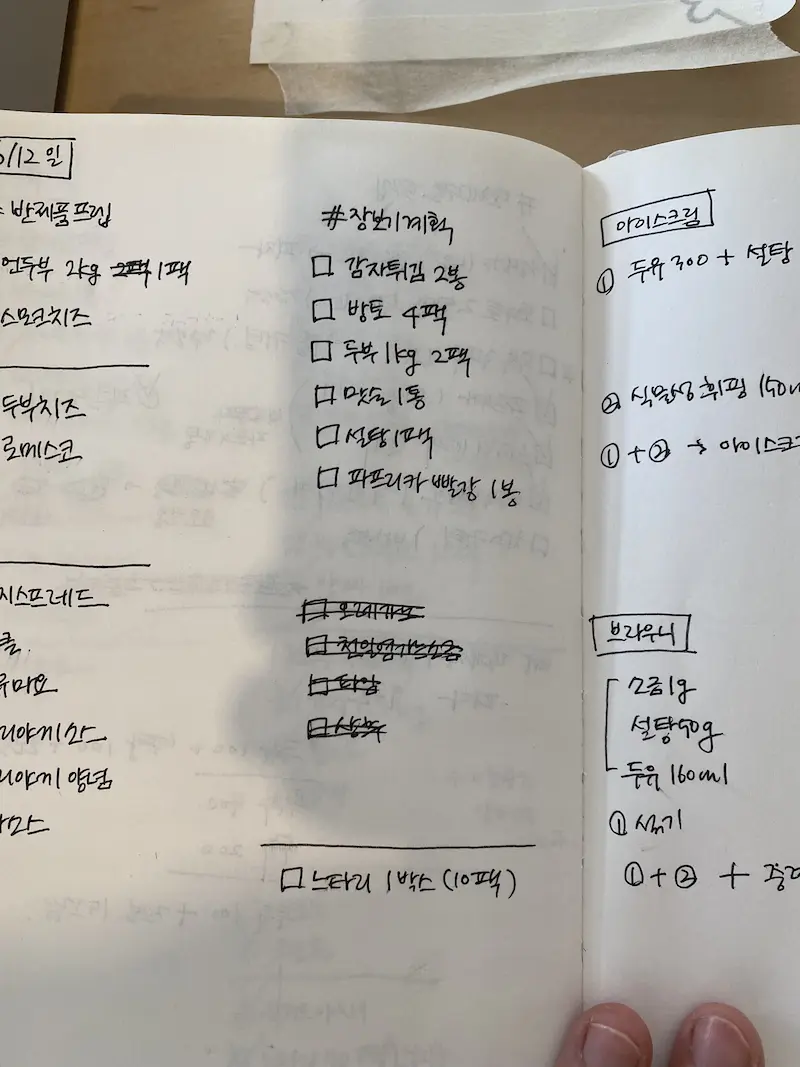 6/12 일
반제품프랩
언두부 2kg 2팩 1팩
스모크치즈
두부치즈
로메스코
지스프레드
클.
유마요
리야끼소스
리야끼 양념
#장보기계획
□ 감자튀김 2봉
□ 방토 4팩
□ 두부 1kg 2팩
□ 맛술 1통
□ 설탕 1팩
□ 파프리카 빨강 1봉
□ 오레가노
□ 천일염가는소금
□ 타임
□ 상추
□ 느타리 1박스 (10팩)
아이스크림
① 두유 300 + 설탕
② 식물성휘핑 150
① + ② → 아이스크
브라우니
소금 1g
설탕 90g
두유 160ml
① 섞기
① + ② +